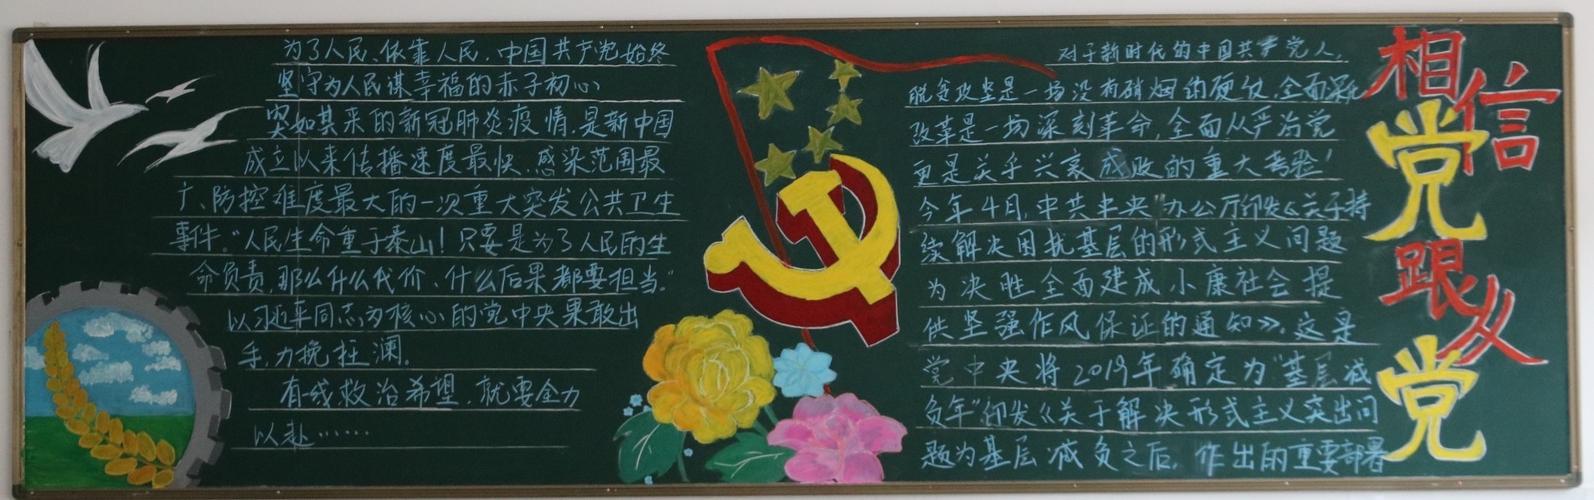 为了人民、依靠人民,中国共产党始终
坚守为人民谋幸福的赤子初心
突如其来的新冠肺炎疫情,是新中国
成立以来传播速度最快、感染范围最
广、防控难度最大的一次重大突发公共卫生
事件。"人民生命重于泰山!只要是为了人民的生
命负责,那么什么代价、什么后果都要担当。"
以习近平同志为核心的党中央果敢出
手,力挽狂澜。
有一线救治希望,就要全力
以赴……
对于新时代的中国共产党人,
脱贫攻坚是一场没有硝烟的硬仗,全面深化
改革是一场深刻革命,全面从严治党
更是关乎兴衰成败的重大考验!
今年4月,中共中央办公厅印发《关于持
续解决困扰基层的形式主义问题
为决胜全面建成小康社会提
供坚强作风保证的通知》。这是
党中央将2019年确定为"基层减
负年"印发《关于解决形式主义突出问
题为基层减负之后,作出的重要部署
相信党跟从党